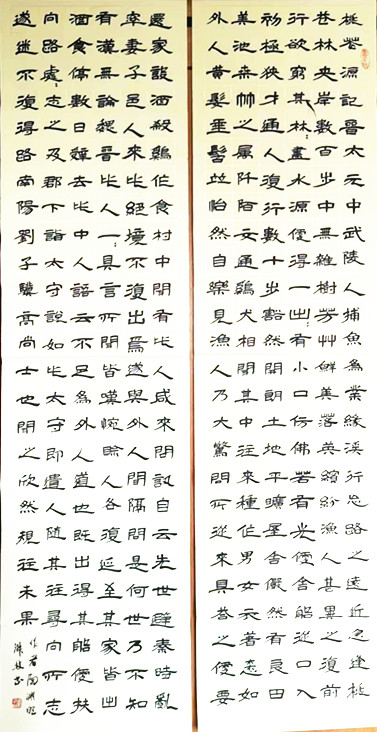 桃花源記晉太元中武陵人捕魚為業緣溪行忘路之遠近忽逢桃
花林夾岸數百步中無雜樹芳艸鮮美落英繽紛漁人甚異之復前
行欲窮其林:盡水源便得一山:有小口仿佛若有光便舍船從口入
初極狹才通人復行數十步豁然開朗土地平曠屋舍儼然有良田
美池桑竹之屬阡陌交通雞犬相聞其中往來種作男女衣著悉如
外人黃髮垂髫並怡然自樂見漁人乃大驚問所從來具答之便要
還家設酒殺雞作食村中聞有此人咸來問訊自云先世避秦時亂
率妻子邑人來此絕境不復出焉遂與外人間隔問是何世乃不知
有漢無論魏晉此人一:具言所聞皆嘆惋餘人各復延至其家皆出
酒食停數日辭去此中人語云不足為外人道也既出得其船便扶
向路處:志之及郡下詣太守說如此太守即遣人隨其往尋向所志
遂迷不復得路南陽劉子驥高尚士也聞之欣然規往未果
作者陶淵明